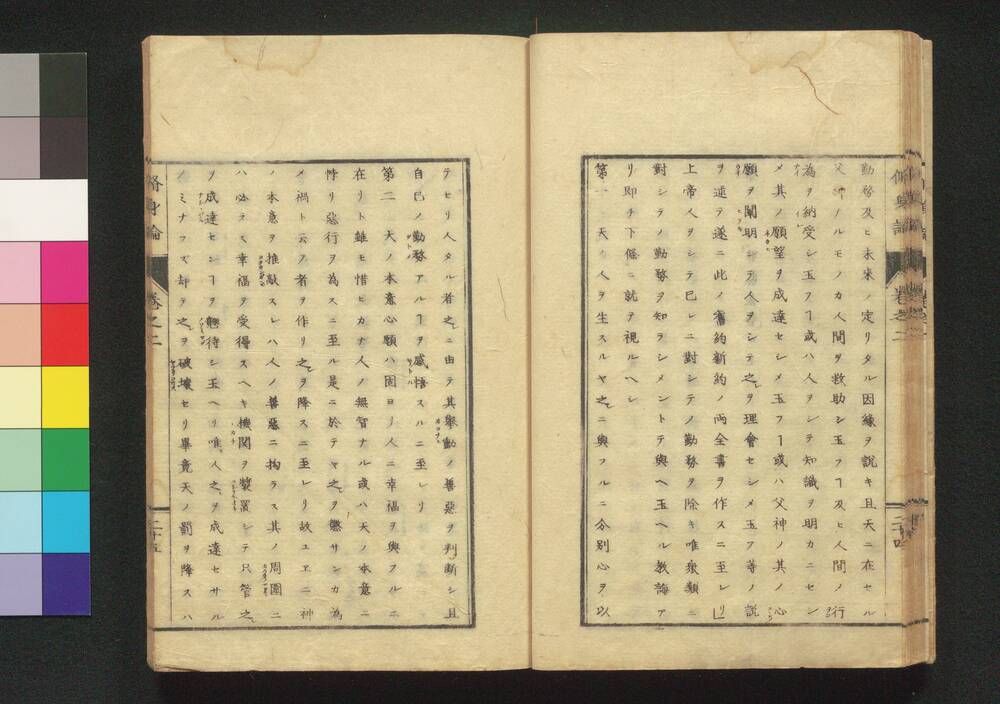 勤務及ヒ未來ノ定リタル因緣ヲ說キ且天ニ在セル
父神ノルモノカ人間ヲ救助シ玉フヿ及ヒ人間ノ行
為ヲ納受シ玉フヿ或ハ人ヲシテ知識ヲ明カニセシ
メ其ノ願望ヲ成達セシメ玉フヿ或ハ父神ノ其ノ心
願ヲ闡明シテ人ヲシテ之ヲ理會セシメ玉フ等ノ說
ヲ述テ遂ニ此ノ舊約新約ノ両全書ヲ作スニ至レリ
上帝人ヲシテ已レニ對シテノ勤務ヲ除キ唯衆類ニ
對シテノ勤務ヲ知ラシメントテ與ヘ玉ヘル教誨ア
リ即チ下條ニ就テ視ルヘシ
第一 天ノ人ヲ生スルヤ之ニ與フルニ分別心ヲ以
脩身論 卷之二 二十四
テセリ人タル者之ニ由テ其擧動ノ善惡ヲ判斷シ且
自己ノ勤務アルヿヲ感悟スルニ至レリ
第二 天ノ本意心願ハ固ヨリ人ニ幸福ヲ與フルニ
在リト雖モ惜ヒカナ人ノ無智ナル或ハ天ノ本意ニ
悖リ惡行ヲ為スニ至ル是ニ於テヤ之ヲ懲サンカ為
メ禍ト云フ者ヲ作リ之ヲ降スニ至レリ故ユエニ神
ノ本意ヲ推敲スレハ人ノ善惡ニ拘ラス其ノ周圍ニ
ハ必ラス幸福ヲ受得スヘキ機関ヲ裝置シテ只管之
ヲ成達センヿヲ懸待シ玉ヘリ唯人之ヲ成達セサル
ノミナラズ却テ之ヲ破壞セリ畢竟天ノ罰ヲ降スハ
脩身論 卷之二 二十五